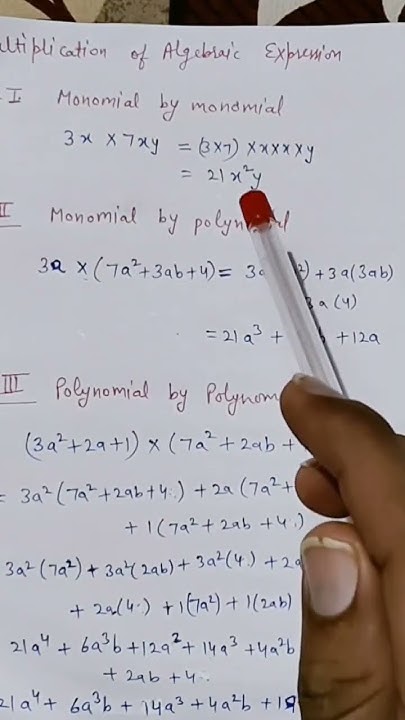 ultiplication of Algebraic Expression
I Monomial by monomial
3x × 7xy = (3×7) × x × x × y
= 21x²y
II Monomial by
3a × (7a²+3ab+4) = 3a ²) + 3a(3ab)
3a (4)
= 21a³ + +12a
III Polynomial by Polynom
(3a²+2a+1) × (7a² + 2ab +
= 3a²(7a²+2ab+4) + 2a (7a²+
+ 1(7a² + 2ab + 4)
3a²(7a²) + 3a²(2ab) + 3a²(4) + 2a
+ 2a(4) + 1(7a²) + 1(2ab)
21a⁴ + 6a³b + 12a² + 14a³ + 4a²b
+ 2ab + 4
21a⁴ + 6a³b + 14a³ + 4a²b + 19